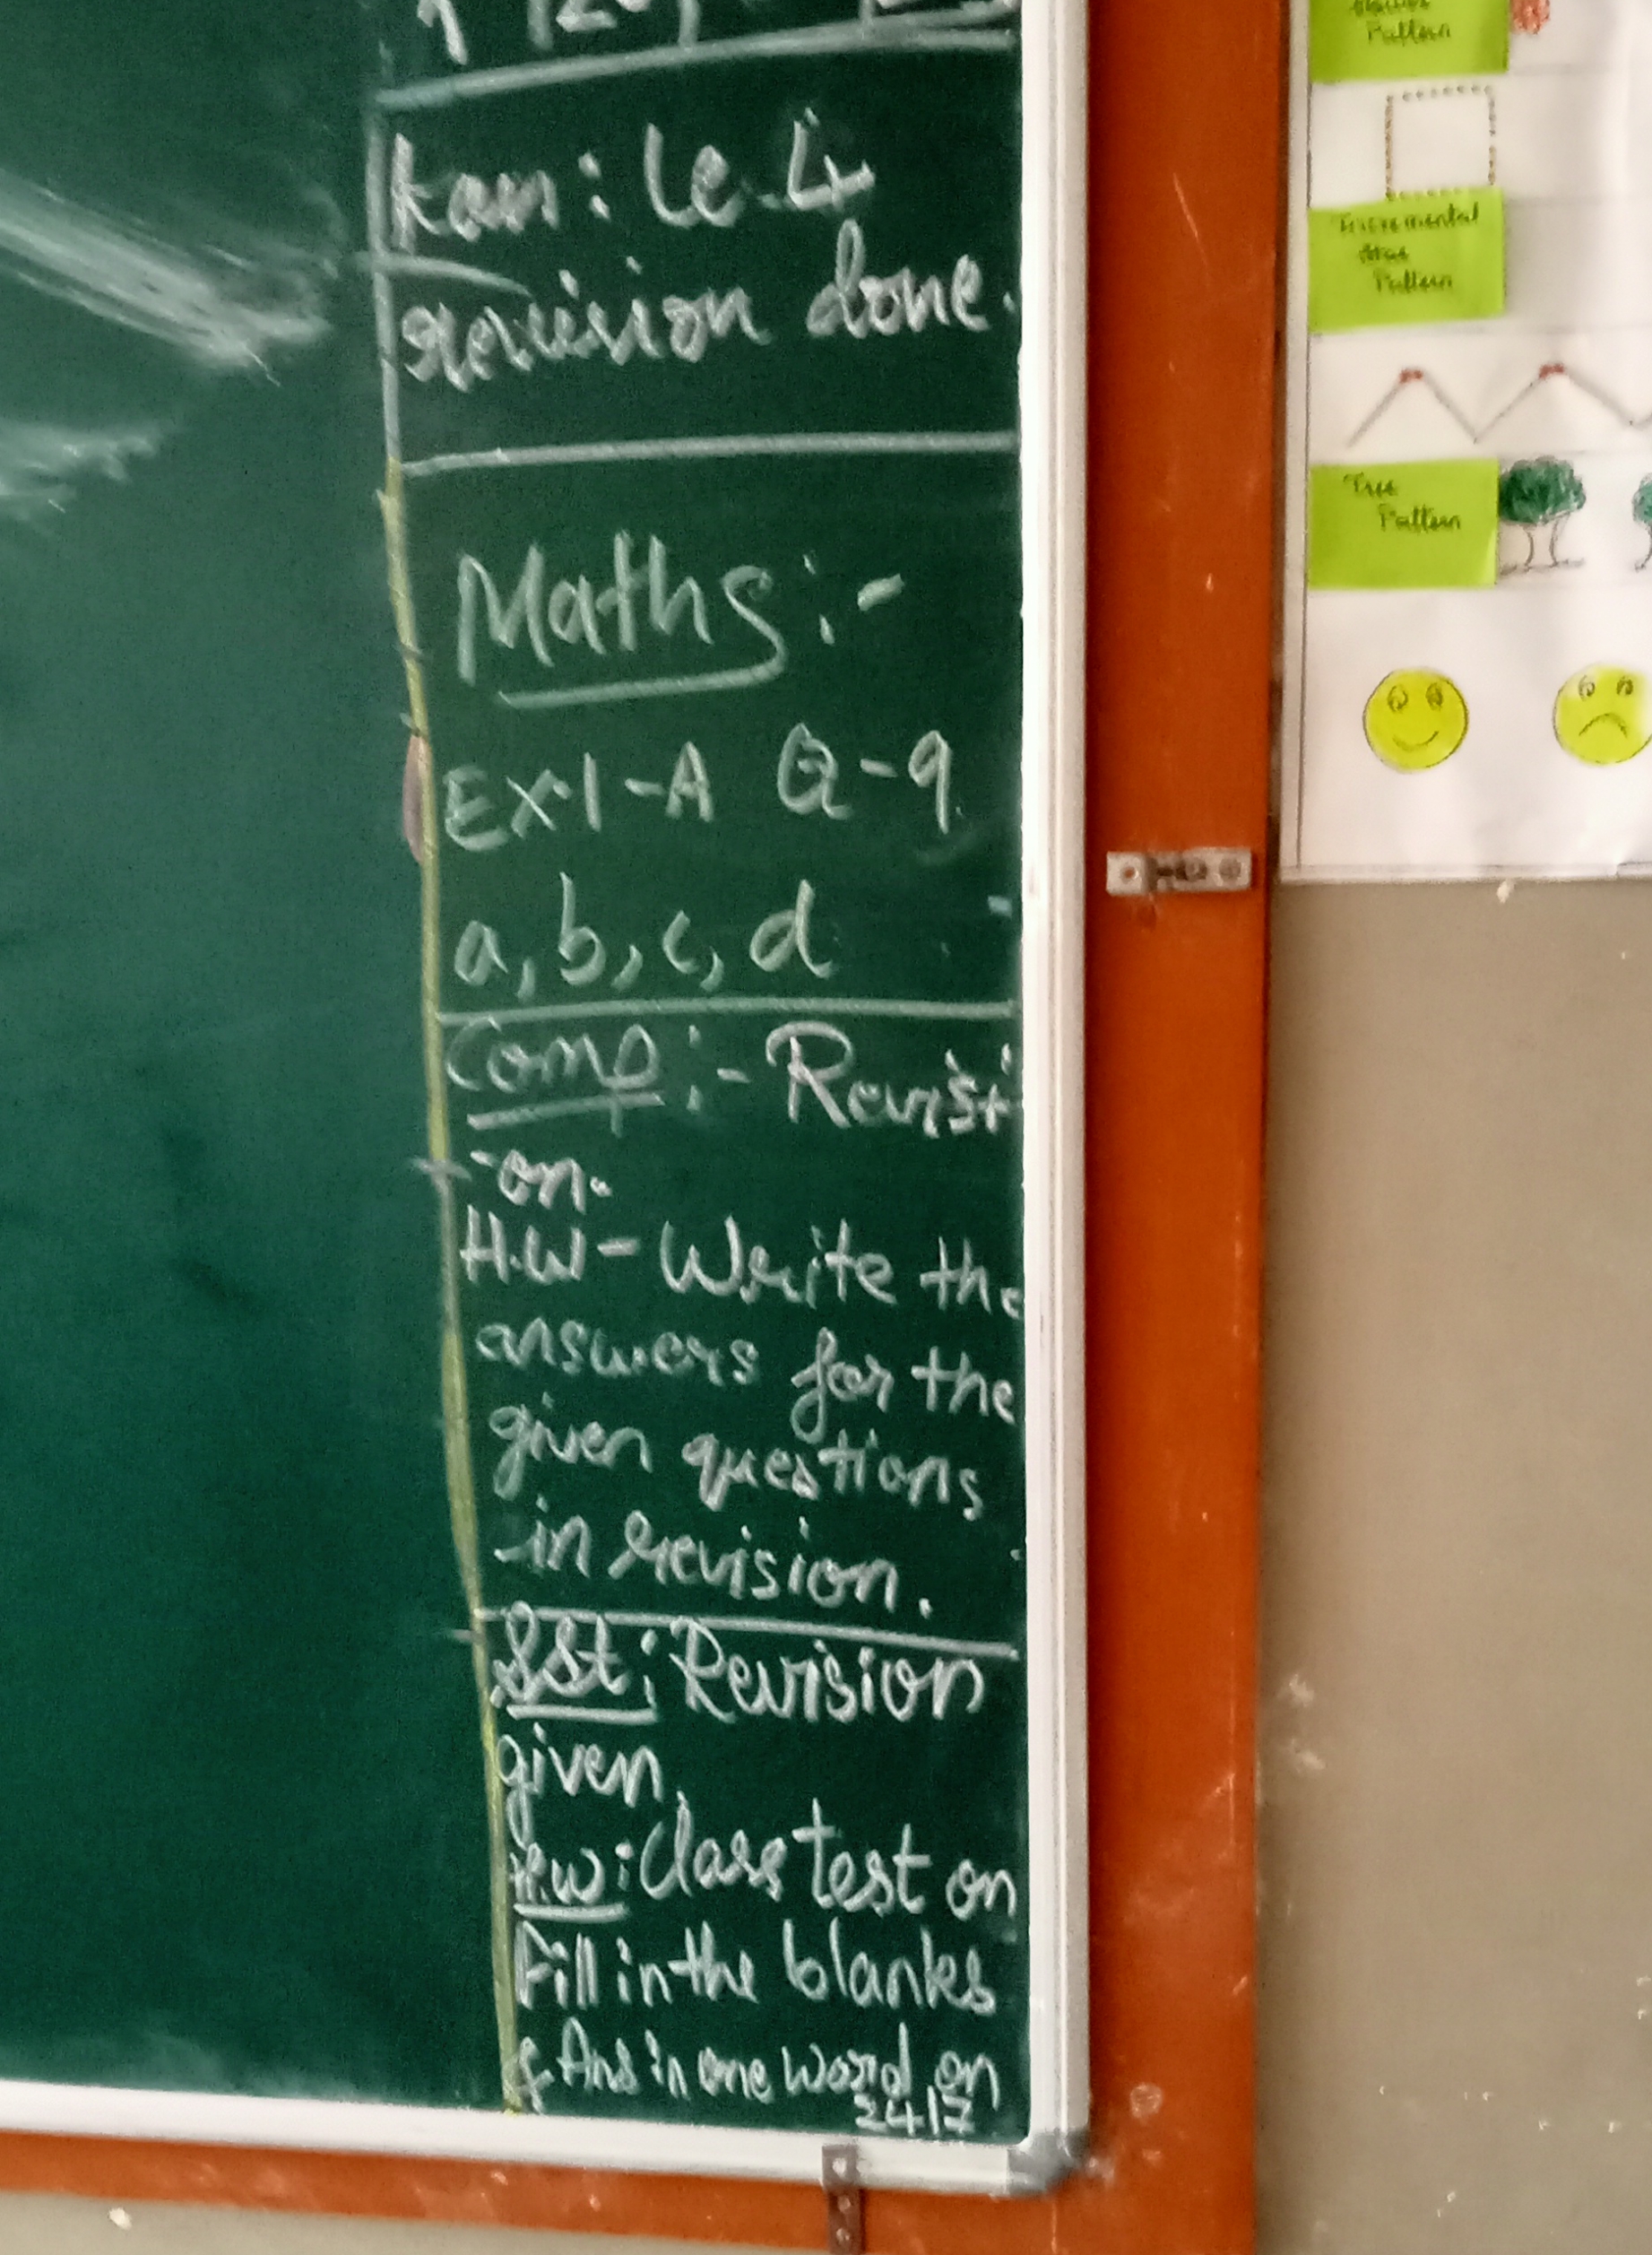 Kan: Le-4
revision done.
Maths:-
Ex1-A Q-9
a, b, c, d
Comp:- Revisi
-on.
H.W- Write the
answers for the
given questions
in revision.
SSt: Revision
given.
H.W: Class test on
Fill in the blanks
& Ans in one word on
24/7
Pattern
Incremental
Pattern
Tree
Pattern